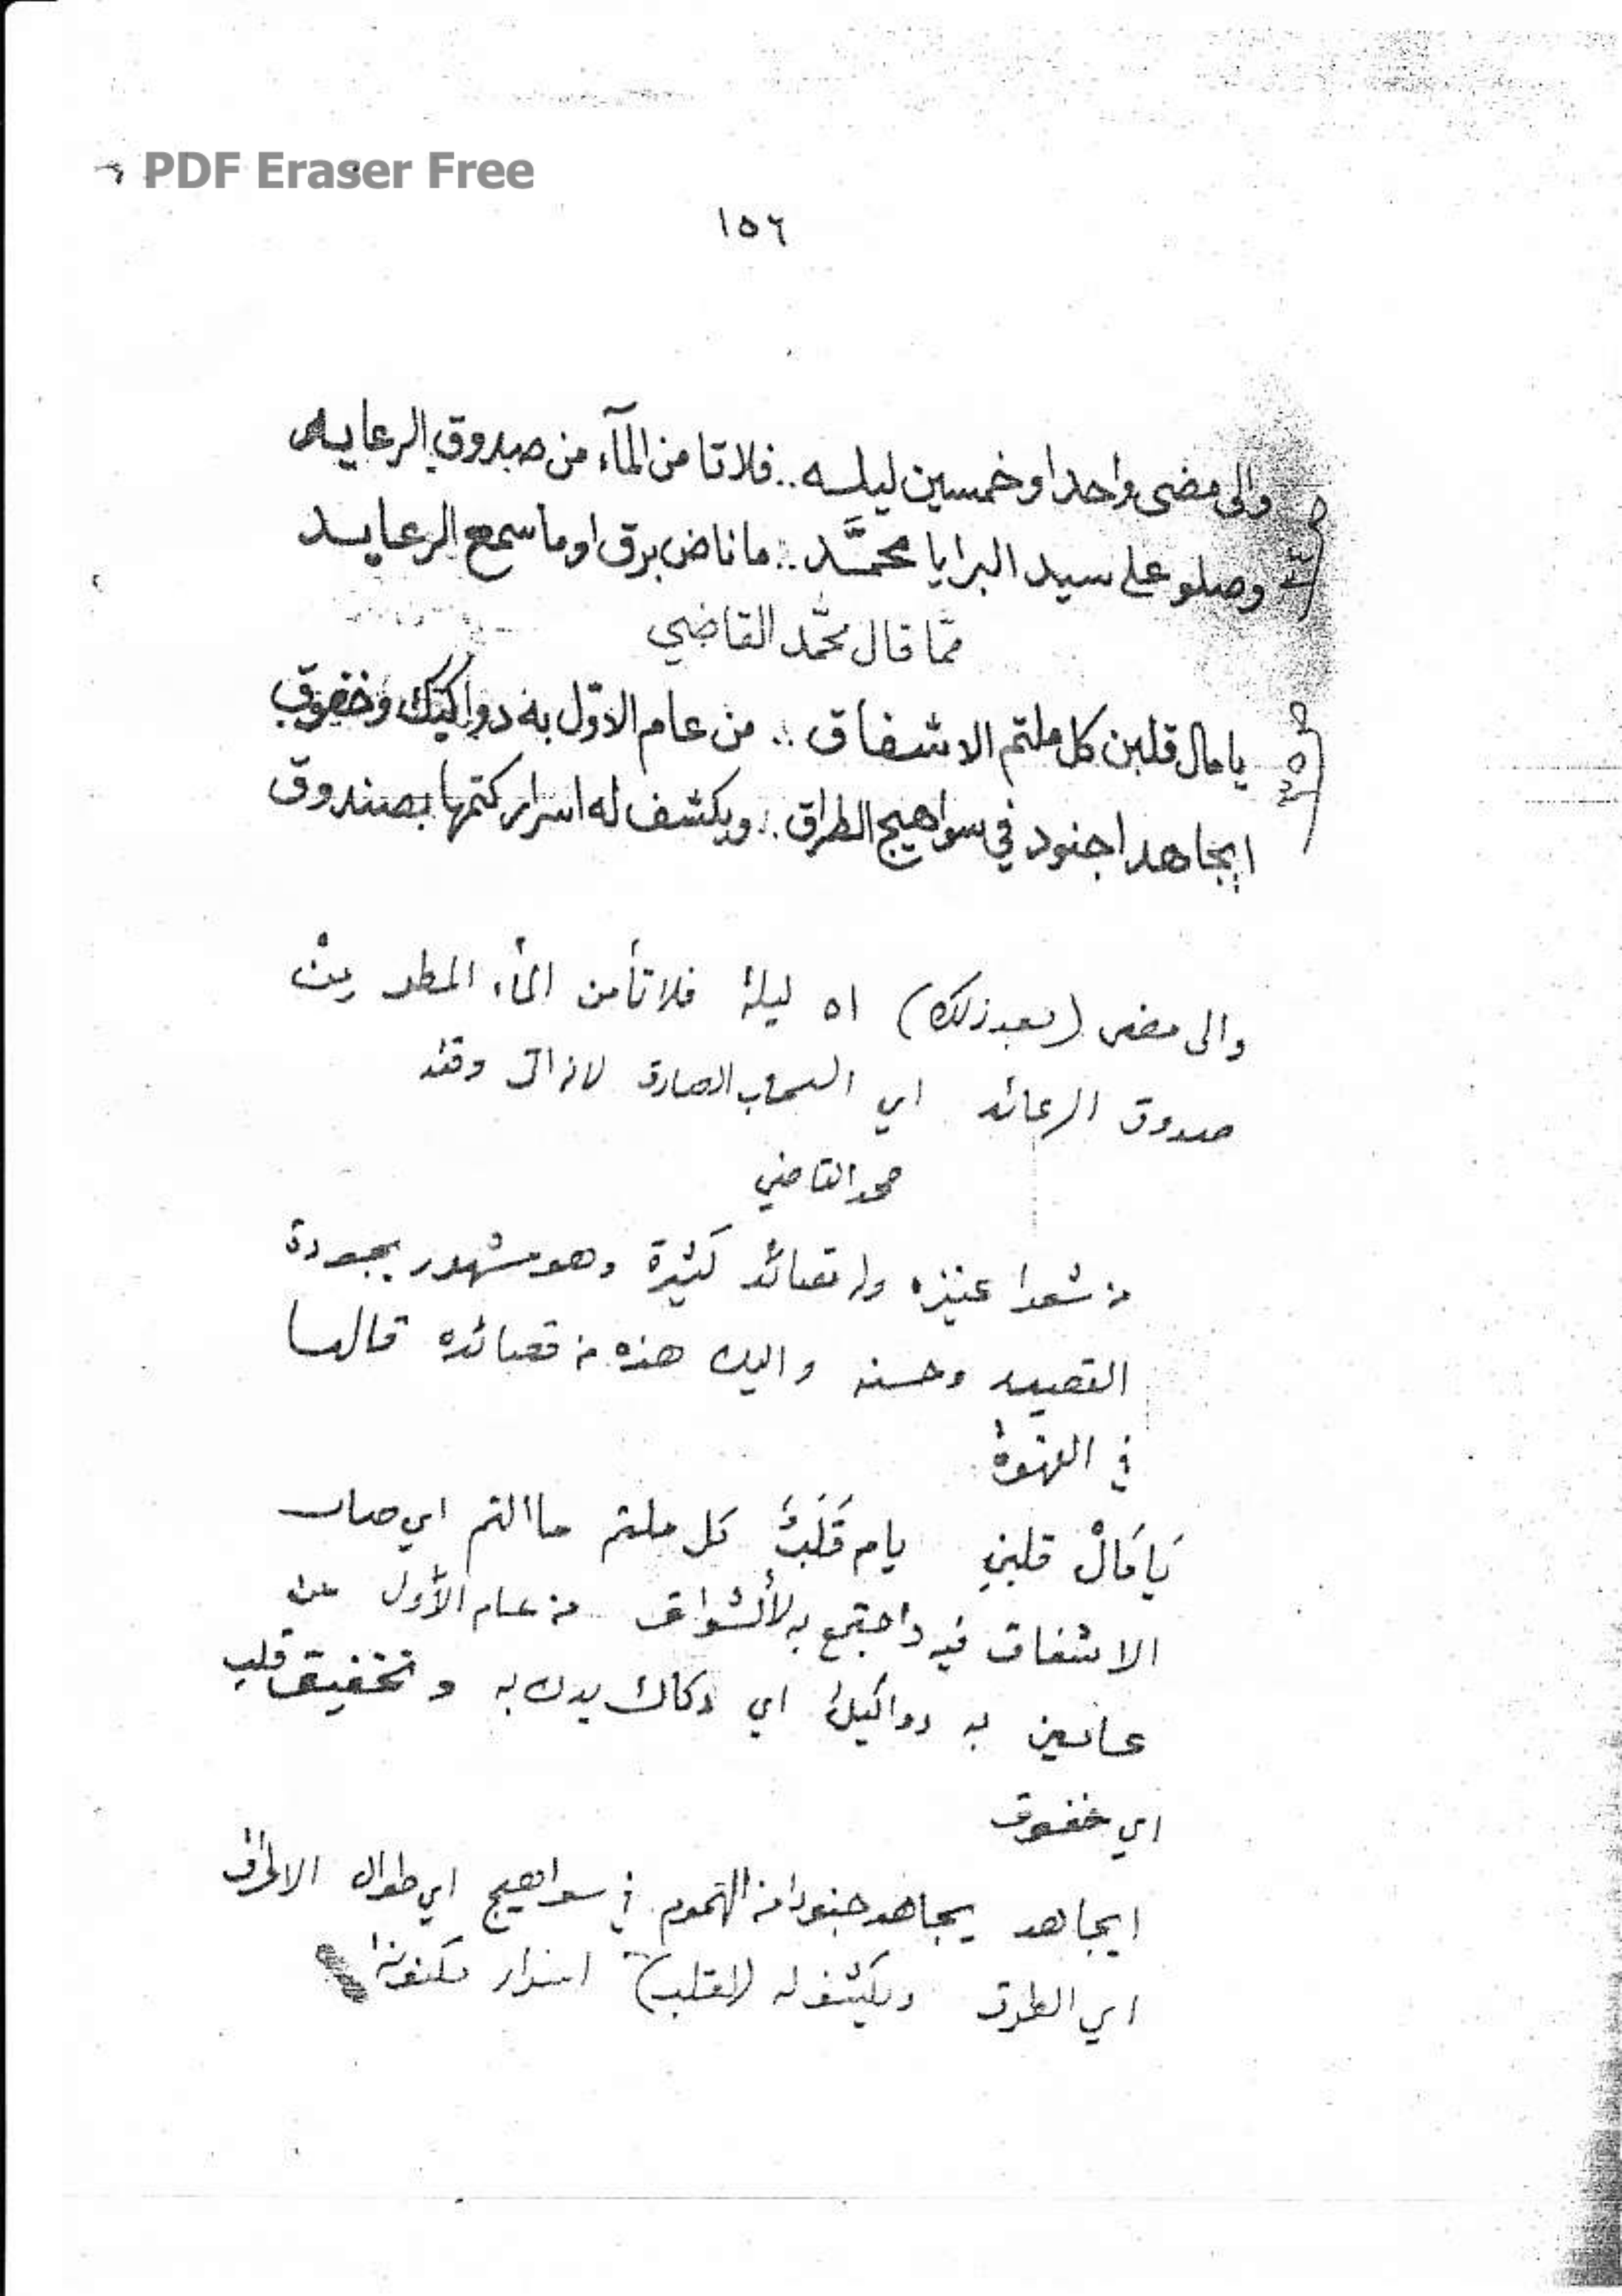 PDF Eraser Free
١٥٦
والى مضى واحدا وخمسين ليله .. فلا تامن المآء من صدوق الرعايد
وصلو على سيد البرايا محمَّد .. ما ناض برق او ما سمع الرعايد
ممّا قال محمّد القاضي
يا مال قلبن كل ملتم الاشفاق .. من عام الاوّل به دواكيك وخفوق
ايجاهد اجنود في سواهيج الطراق .. ويكشف له اسرار كتمها بصندوق
والى مضى (بعد ذلك) ٥١ ليلة فلا تأمن المأء المطر من
صدوق الرعائد اي السحاب الصادق لانه اتى وقته
محمد القاضي
من شعرا عنيزه وله قصائد كثيرة وهو مشهور بجودة
القصيد وحسنه واليك هذه من قصائده قالها
في القهوة
يَا مَالْ قلبن يام قَلَبْ كل ملتم ما التم اي صار
الاشفاق فيه واجتمع به الأشواق من عام الأول من
عامين به دواكيك اي دكاك يدك به و تخفيق قلب
اي خفوق
ايجاهد يجاهد جنودا من الهموم في سواهيج اي طوال الاطراق
اي الطرق ويكشف له (القلب) اسرار مكنونة